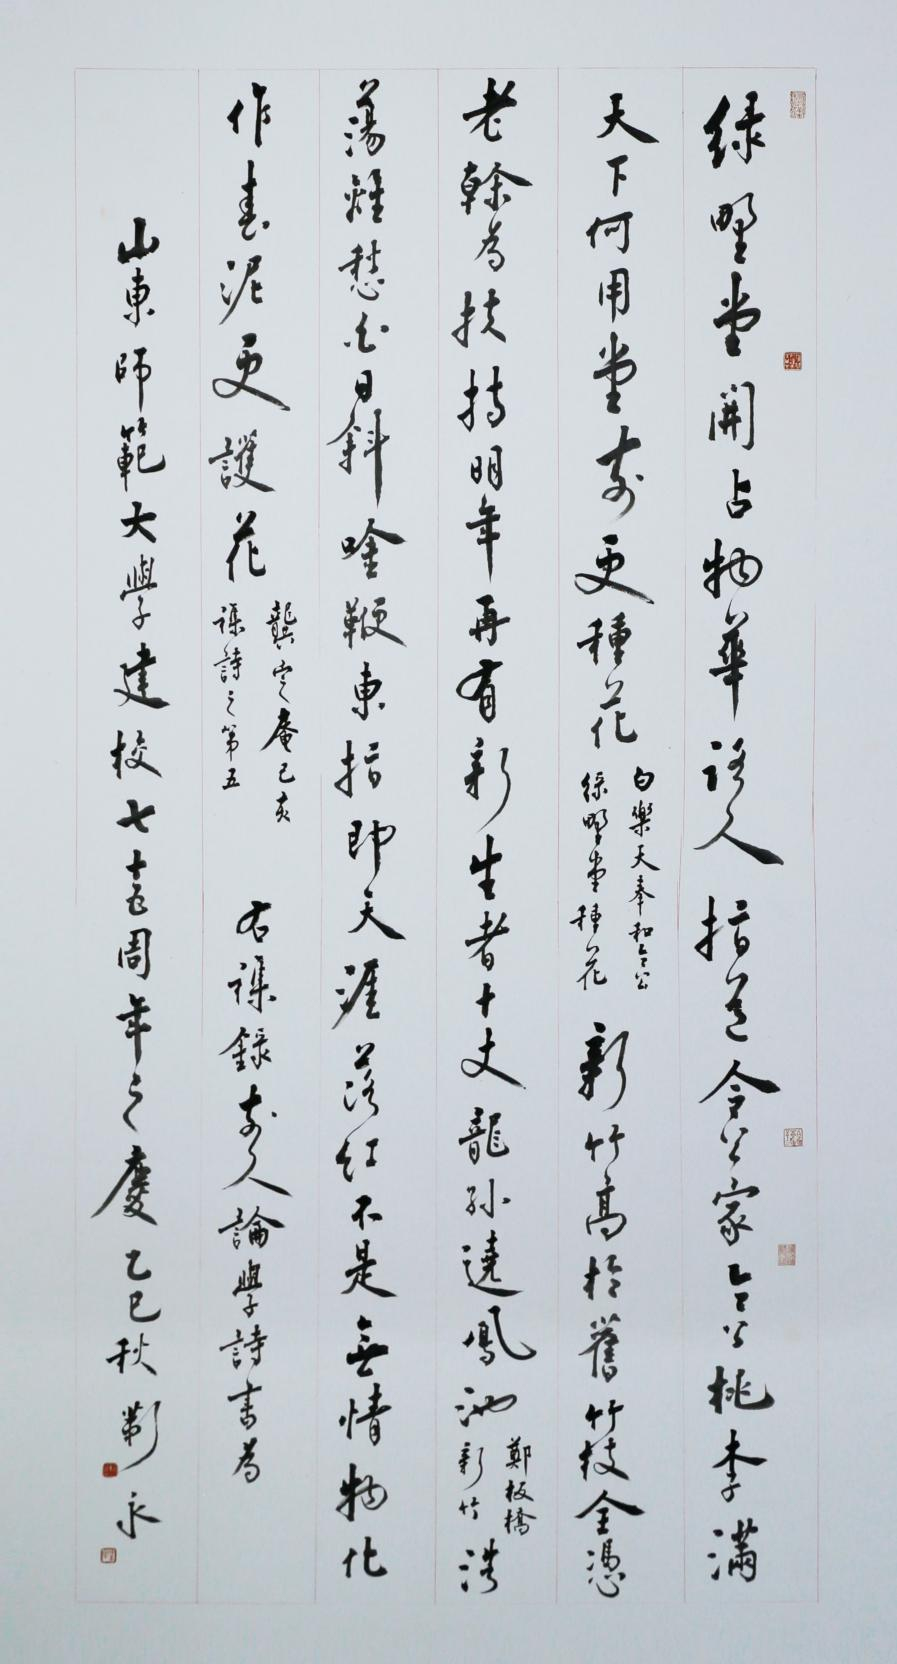 綠野堂開占物華路人指道令公家令公桃李滿
天下何用堂前更種花
白樂天奉和令公
綠野堂種花
新竹高於舊竹枝全憑
老幹為扶持明年再有新生者十丈龍孫遶鳳池
鄭板橋
新竹
浩
蕩離愁白日斜吟鞭東指即天涯落紅不是無情物化
作春泥更護花
龔定庵己亥
雜詩之第五
右雜錄前人論學詩書為
山東師範大學建校七十五周年之慶乙巳秋 永